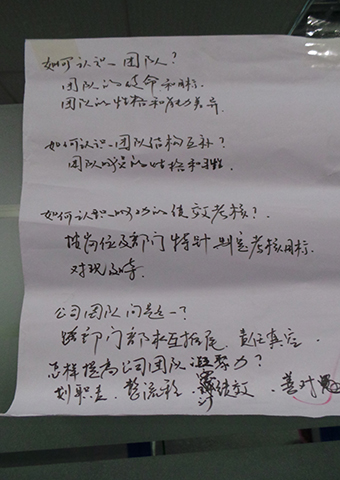 如何认识团队?
团队的使命和目标.
团队的性格和能力差异.
如何认识团队结构互补?
团队成员的性格和习性
如何认识成功的绩效考核?
按岗位及部门特点制定考核目标.
对现及等.
公司团队问题一?
跨部门部求互拖尾, 责任真空.
怎样提高公司团队凝聚力?
划职责, 整流程, 绩效, 善对